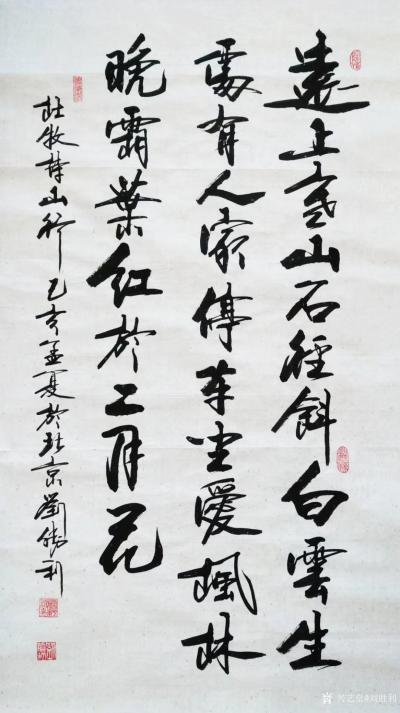 遠上寒山石徑斜白雲生
處有人家停車坐愛楓林
晚霜葉紅於二月花
杜牧詩山行 己亥孟夏於北京 劉勝利